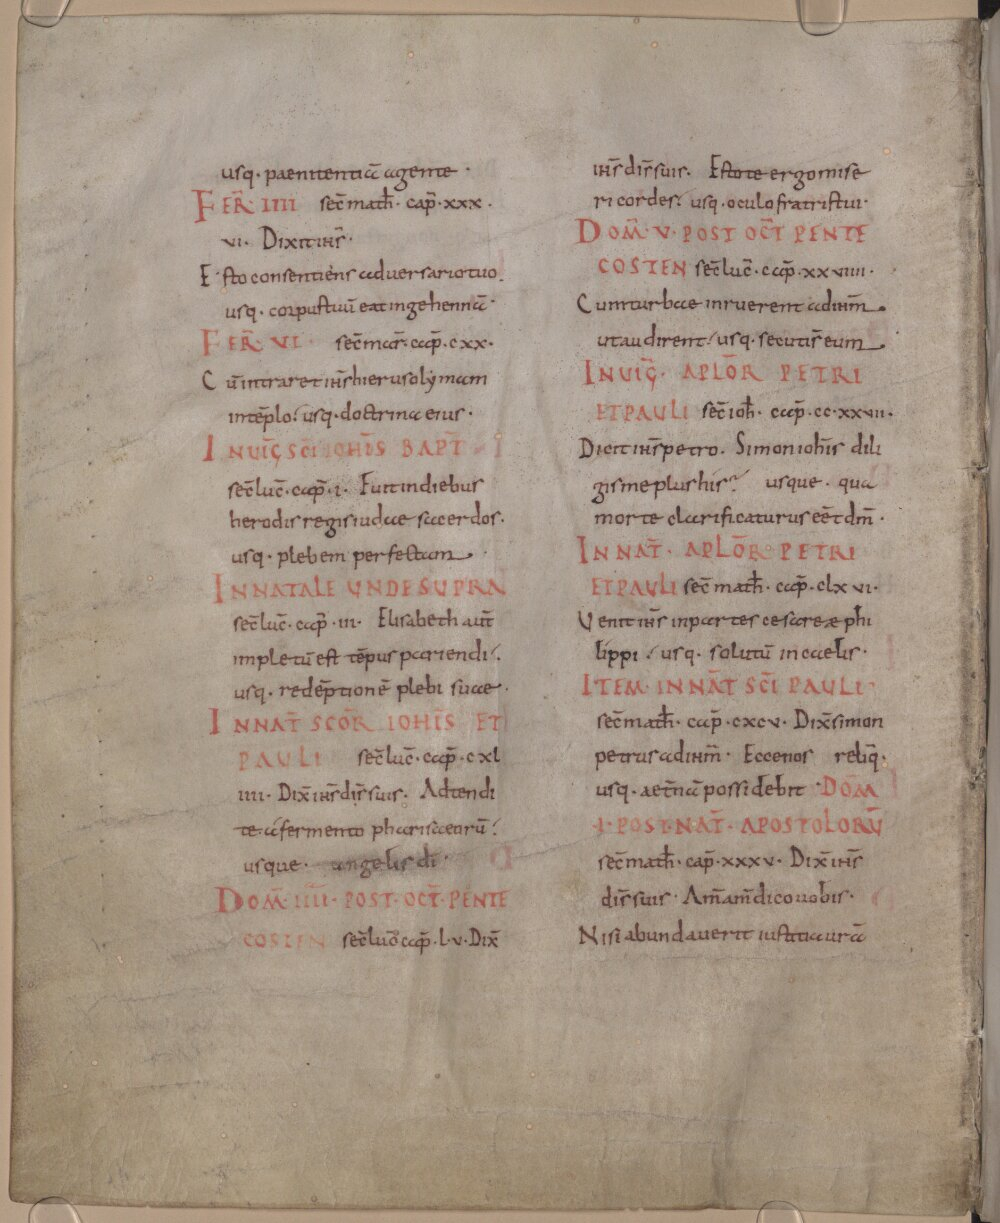 usq· paenitentiā agente·
FER̄ IIII sec̄ math̄· cap̄· xxx·
vi· Dixit ih̄s·
Esto consentiens adversario tuo
usq· corpus tuū eat in gehennā·
FER̄ VI· sec̄ mar̄· cap̄· cxx·
Cū intraret ih̄s hierusolymam
in tēplo· usq· doctrina eius·
IN UIG̅ SC̄I IOHIS̄ BAPT̄
sec̄ luc̄· cap̄· i· Fuit in diebus
herodis regis iudae sacerdos·
usq· plebem perfectam·
IN NATALE UNDE SUPRA
sec̄ luc̄· cap̄· iii· Elisabeth aut̄
impletū est tēpus pariendi·
usq· redēptionē plebi suae·
IN NAT̄ SCOR̄ IOHIS̄ ET
PAULI sec̄ luc̄· cap̄· cxl
iiii· Dix̄ ih̄s dis̄ suis· Adtendi
te a fermento pharisaeorū·
usque· angelis di·
DOM̄ IIII· POST· OCT̄· PENTE
COSTEN sec̄ luc̄ cap̄· l·v· Dix̄
ih̄s dis̄ suis· Estote ergo mise
ricordes· usq· oculo fratris tui·
DOM̄ V· POST OCT̄ PENTE
COSTEN sec̄ luc̄· cap̄· xxviiii·
Cum turbae inruerent ad ihm̄·
ut audirent· usq· secuti s̄ eum
IN UIG̅· APLOR̄ PETRI
ET PAULI sec̄ ioh̄· cap̄· cc·xxvii·
Dicit ih̄s petro· Simon iohis̄ dili
gis me plus his? usque· qua
morte clarificaturus eēt dm̄·
IN NAT̄· APLOR̄ PETRI
ET PAULI sec̄ math̄· cap̄· clxvi·
Venit ih̄s in partes cesareæ phi
lippi· usq· solutū in caelis·
ITEM· IN NAT̄ SC̄I PAULI·
sec̄ math̄· cap̄· cxcv· Dix̄ simon
petrus ad ihm̄· Ecce nos reliq̄·
usq· aet̄nā possidebit· DOM̄
·I· POST· NAT̄· APOSTOLORŪ
sec̄ math̄· cap̄· xxxv· Dix̄ ih̄s
dis̄ suis· Am̄ am̄ dico vobis·
Nisi abundaverit iustitia urā